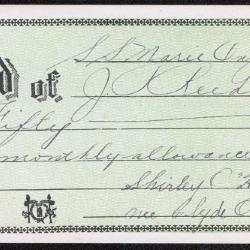 S S Marie
d of. J
Fifty
monthly allowance
Shirley C
Clyde